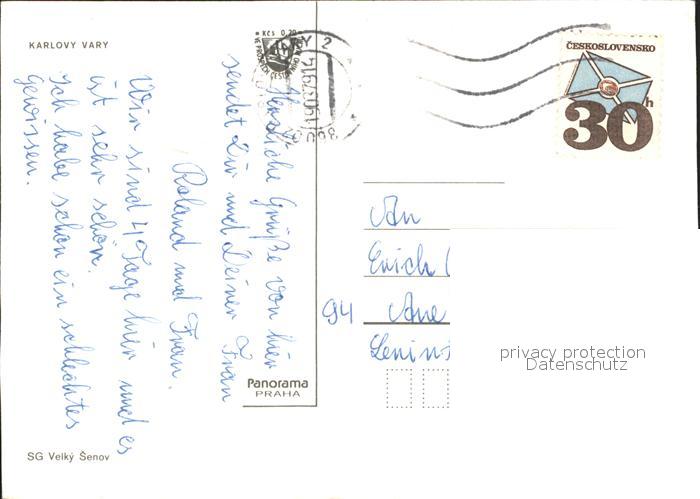 KARLOVY VARY
Kčs 0,20
Herzliche Grüße von hier
sendet Dir und Deiner Frau
Roland und Frau.
Wir sind 4 Tage hier und es
ist sehr schön.
Ich habe schon ein schlechtes
Gewissen.
SG Velký Šenov
Panorama
PRAHA
VARY 2
ČESKOSLOVENSKO
30h
An
Erich
94 Aue
privacy protection
Datenschutz